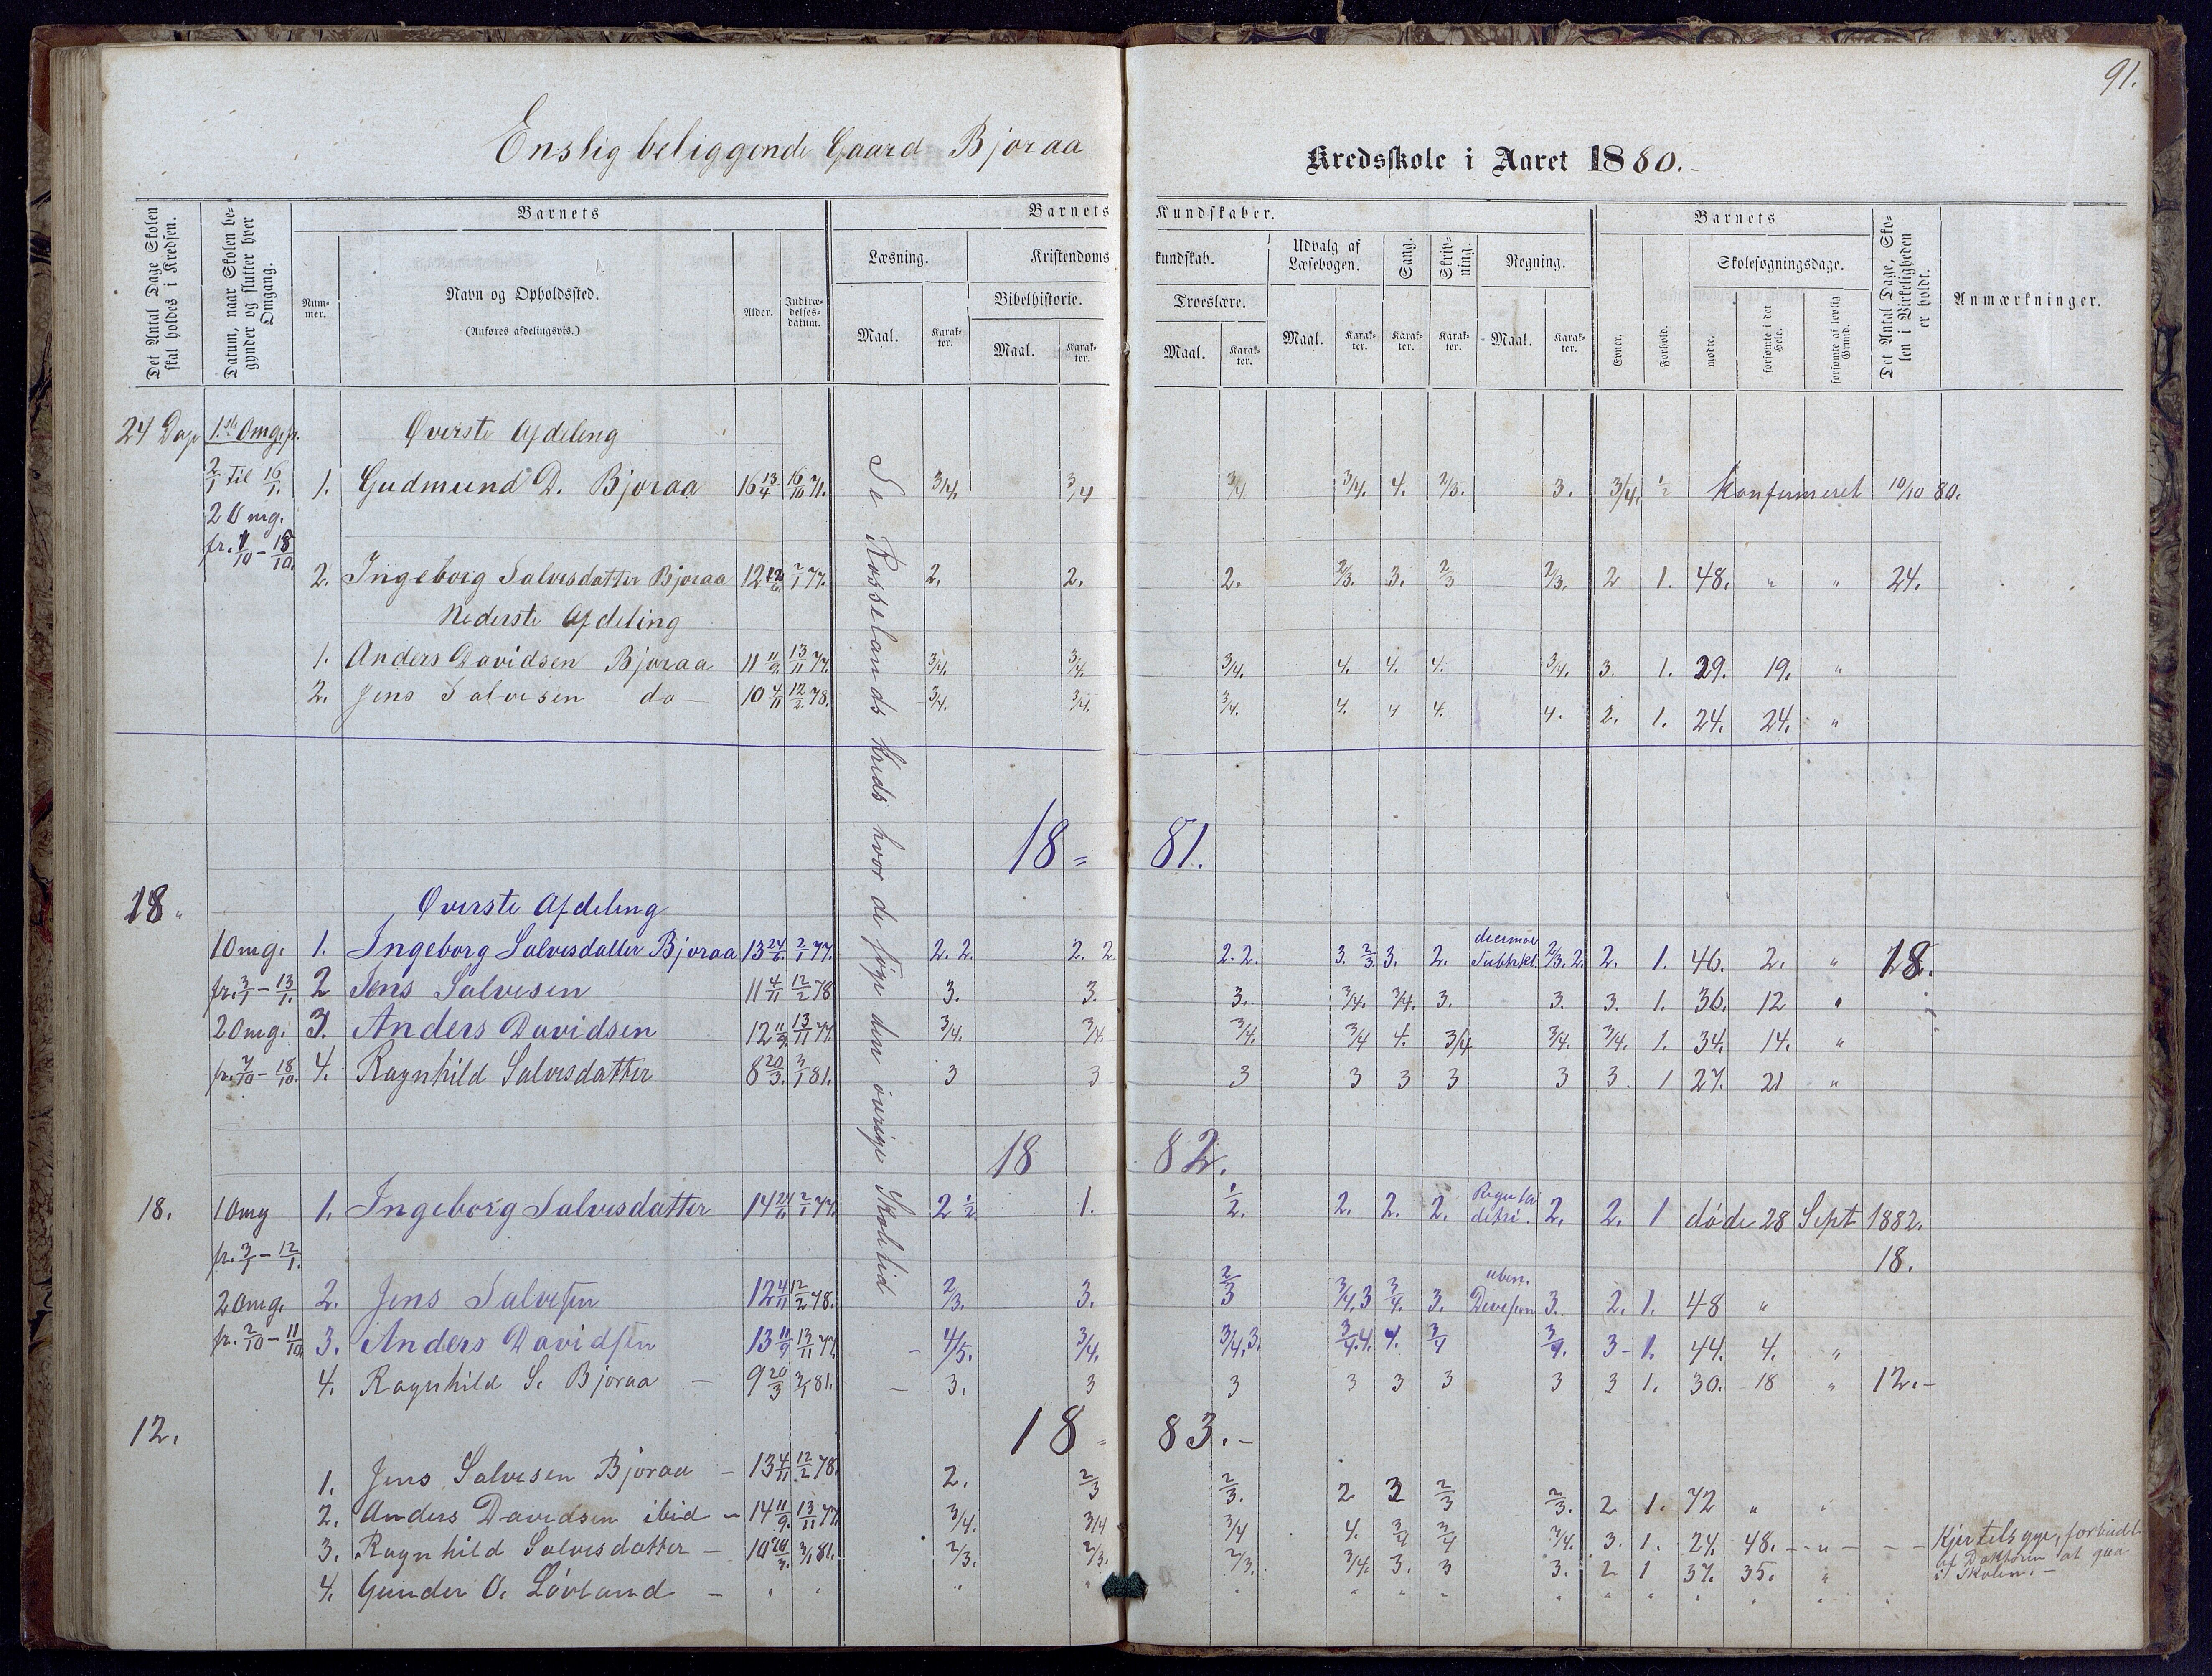 91.
Enslig beliggende Gaard Bjoraa
Kredsskole i Aaret 1880.
Det Antal Dage Skolen skal holdes i Kredsen.
Datum, naar Skolen begynder og slutter hver Omgang.
Barnets
Nummer.
Navn og Opholdssted.
(Anføres afdelingsvis.)
Alder.
Indtrædelsesdatum.
Barnets Kundskaber.
Læsning.
Kristendomskundskab.
Udvalg af Læsebogen.
Sang.
Skrivning.
Regning.
Bibelhistorie.
Troeslære.
Maal. Karakter. Maal. Karakter. Maal. Karakter. Maal. Karakter. Karakter. Karakter. Maal. Karakter.
Barnets
Evner. Forhold.
Skolesøgningsdage.
mødte. forsømte i det Hele. forsømte af lovlig Grund.
Det Antal Dage, Skolen i Virkeligheden er holdt.
Anmærkninger.
24 Dage 1.ste Omg. fr. Øverste Afdeling
2/1 til 16/1. 1. Gudmund D. Bjoraa 16 13/4 16/10 71. 3/4. 3/4 3/4 3/4. 4. 2/3. 3. 3/4. 1/2 Konfirmeret 10/10 80.
2 Omg.
fr. 1/10 - 18/10.
2. Ingeborg Salvesdatter Bjoraa 12 24/6. 2/1 77. 2. 2. 2. 2/3. 3. 2/3 2/3. 2 1. 48. " " 24.
Nederste Afdeling
1. Anders Davidsen Bjoraa 11 11/9. 13/11 77. 3/4. 3/4. 3/4. 4. 4. 4. 3/4. 3. 1. 29. 19. "
2. Jens Salvesen - do - 10 4/11 12/2 78. 3/4. 3/4. 3/4. 4. 4 4. 4. 2. 1. 24. 24. "
Se Rosselands Kreds hvor de søge den øvrige Skoletid
18 = 81.
18 " Øverste Afdeling
1 Omg. 1. Ingeborg Salvesdatter Bjoraa 13 24/6. 2/1 77. 2. 2. 2. 2 2. 2. 3. 2/3. 3. 2. decimal Subtrkt. 2/3. 2. 2. 1. 46. 2. " 18.
fr. 3/1 - 13/1. 2 Jens Salvesen 11 4/11 12/2 78 3. 3. 3. 3/4. 3/4. 3. 3. 3. 1. 36. 12 "
2 Omg. 3. Anders Davidsen 12 11/9. 13/11 77. 3/4. 3/4. 3/4. 3/4 4. 3/4 3/4. 3/4. 1. 34. 14. "
fr. 7/10 - 18/10. 4. Ragnhild Salvesdatter 8 20/3. 3/1 81. 3 3 3 3 3 3 3 3. 1 27. 21 "
18 82.
18. 1 Omg 1. Ingeborg Salvesdatter 14 24/6 2/1 77. 2 1/2 1. 1/2. 2. 2. 2. Regula detri. 2. 2. 1 døde 28 Sept 1882.
fr. 3/1 - 12/1. 18.
2 Omg. 2. Jens Salvesen 12 4/11 12/2 78. 2/3. 3. 2/3 3/4. 3 3/4. 3. 3. 2. 1. 48 "
fr. 2/10 - 11/10. 3. Anders Davidsen 13 11/9 13/11 77. - 4/5. 3/4. 3/4. 3. 3/4. 4. 4. 3/4 3/4. 3 - 1. 44. 4. "
4. Ragnhild S. Bjoraa - 9 20/3 3/1 81. - 3. 3 3 3 3 3 3 3 1. 30. 18 " 12. -
12. 18 = 83. -
1. Jens Salvesen Bjoraa - 13 4/11 12/2 78. 2. 2/3 2/3. 2 3 2/3 2/3. 2 1. 72 " "
2. Anders Davidsen ibid - 14 11/9. 13/11 77 3/4. 3/4 3/4 4. 3/4 3/4 3/4. 3. 1. 24. 48. - " - - - Kjertelsyge, forbudt af Doktoren at gaa i Skolen. -
3. Ragnhild Salvesdatter - 10 20/3. 3/1 81. 2/3. 2/3. 2/3. 3/4. 3. 3 3. 2 1 37. 35. "
4. Gunder O. Løvland - " " " " " " " " " " " " " "